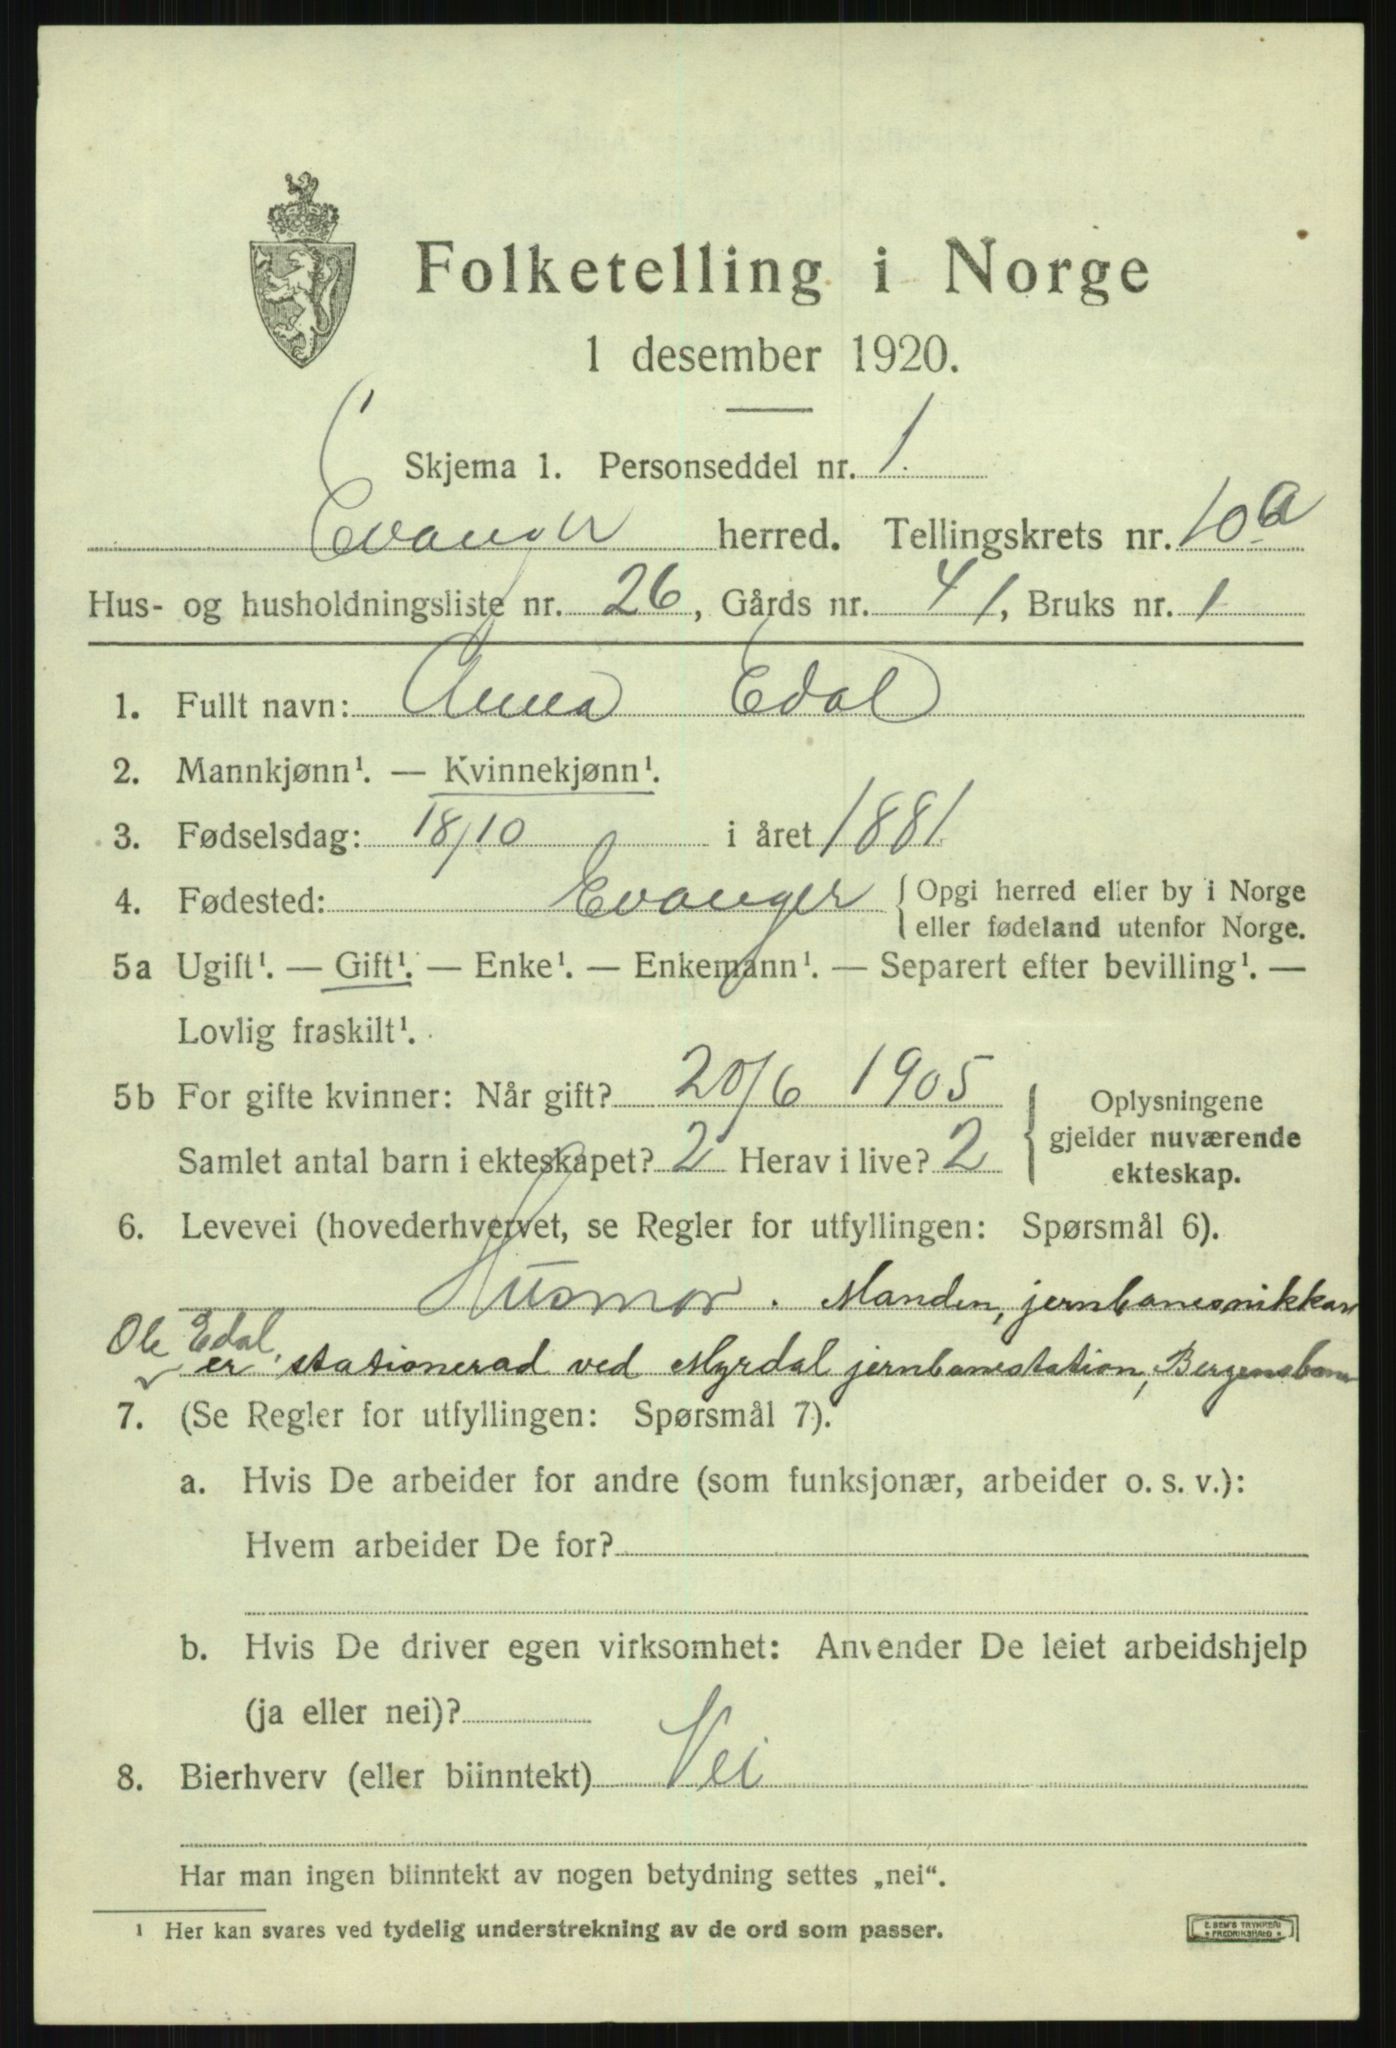 Folketelling i Norge
1 desember 1920.
Skjema 1. Personseddel nr. 1.
Evanger herred. Tellingskrets nr. 10a
Hus- og husholdningsliste nr. 26, Gårds nr. 41, Bruks nr. 1
1. Fullt navn: Anna Edal
2. Mannkjønn¹. — Kvinnekjønn¹.
3. Fødselsdag: 18/10 i året 1881
4. Fødested: Evanger { Opgi herred eller by i Norge
eller fødeland utenfor Norge.
5a Ugift¹. — Gift¹. — Enke¹. — Enkemann¹. — Separert efter bevilling¹. —
Lovlig fraskilt¹.
5b For gifte kvinner: Når gift? 20/6 1905
Samlet antal barn i ekteskapet? 2 Herav i live? 2
Oplysningene
gjelder nuværende
ekteskap.
6. Levevei (hovederhvervet, se Regler for utfyllingen: Spørsmål 6).
Husmor. Manden, jernbanesnikkar
Ole Edal,
er stationerad ved Myrdal jernbanestation, Bergensbane
7. (Se Regler for utfyllingen: Spørsmål 7).
a. Hvis De arbeider for andre (som funksjonær, arbeider o. s. v.):
Hvem arbeider De for?
b. Hvis De driver egen virksomhet: Anvender De leiet arbeidshjelp
(ja eller nei)?
8. Bierhverv (eller biinntekt) Nei
Har man ingen biinntekt av nogen betydning settes „nei“.
¹ Her kan svares ved tydelig understrekning av de ord som passer.
E. SEM'S TRYKKERI
* FREDRIKSHALD *